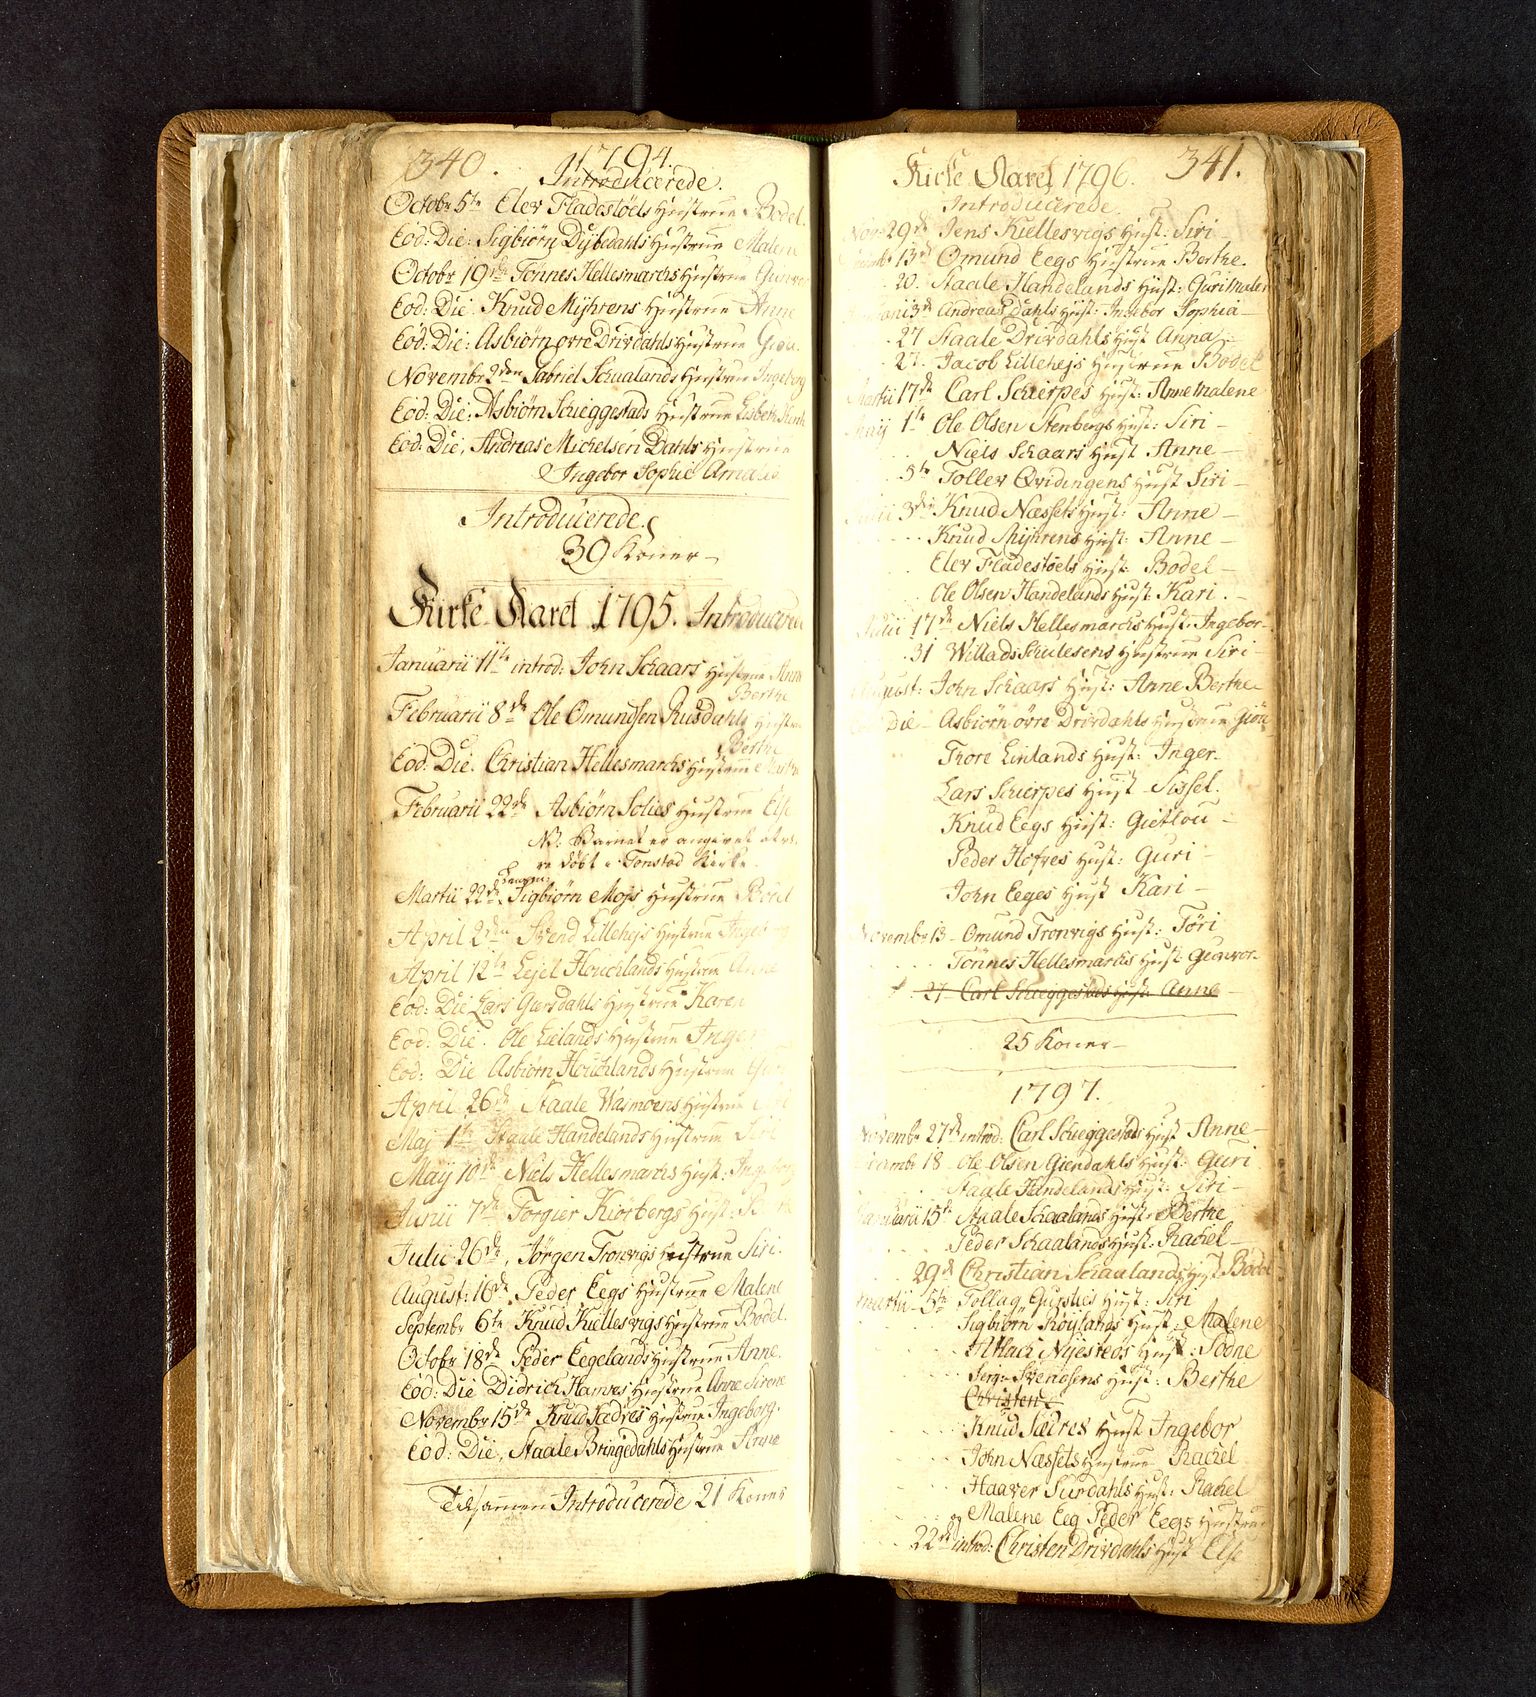 340. 1794.
Introducerede.
Octobr 5te Elev Fladestøels Hustrue Bodel.
Eod: Die: Sigbiørn Dybedahls Hustrue Malene
Octobr 19de Tönnes Hellesmarchs Hustrue
Eod: Die: Knud Myhrens Hustrue Anne
Eod: Die: Asbiørn øvre Drivdahls Hustrue
Novembr 2den Gabriel Schualands Hustrue Ingeborg
Eod: Die: Asbiørn Schieggestads Hustrue Lisbeth
Eod: Die, Andreas Michelsen Dahls Hustrue
Ingebor Sophie Amalie
Introducerede.
39 Koner
Kirke Aaret 1795. Introducerede
Januarii 11te introd: John Schaars Hustrue Anne
Berthe
Februarii 8de Ole Omundsen Rusdahls Hustrue
Berthe
Eod: Die. Christian Hellesmarchs Hustrue Marthe
Februarii 22de Asbiørn Solies Hustrue Else
NB: Barnet er angivet at væ-
re døbt i Tonstad Kirke.
Martii 22de Sigbiørn Mojs Hustrue Bodel
April 2den Svend Lillehejs Hustrue Ingeborg
April 12te Lejel Houchlands Hustrue Anne
Eod: Die Lars Gursdahls Hustrue Karen
Eod: Die. Ole Lielands Hustrue Inger
Eod: Die Asbiørn Houchlands Hustrue
April 26de Staale Wasmoens Hustrue
Maj 1te Staale Handelands Hustrue Siri
Maij 10de Niels Hellesmarchs Hust: Ingeborg
Junii 7de Torgier Kiörbergs Hust: Berthe
Julii 26de, Jørgen Tronvigs Hustrue Siri.
August: 16de Peder Eegs Hustrue Malene
Septembr 6te Knud Kiellesvigs Hustrue Bodel.
Octobr 18de Peder Eegelands Hustrue Anne.
Eod: Die Didrich Hamres Hustrue Anne Sirene
Novembr 15de Knud Sædres Hustrue Ingeborg.
Eod: Die, Staale Bringedahls Hustrue Anne
Tilsamen Introducerede 21 Koner
Kirke Aaret 1796. 341.
Introducerede
Nov 29de Jens Kiellesvigs Hust: Siri
13de Omund Eegs Hustrue Berthe.
20. Staale Handelands Hust: Guri Malen
3de Andreas Dahls Hust: Ingebor Sophia
27 Staale Drivdahls Hust Anna
27. Jacob Lillehejs Hustrue Bodel
Martii 17de Carl Schierpes Hust: Anne Malene
Maij 1te Ole Olsen Stenbergs Hust: Siri
Niels Schaars Hust Anne
5te Tollev Qvidingens Hust Siri
3die Knud Næssets Hust: Anne
Knud Myhrens Hust: Anne
Elev Fladestøels Hust: Bodel
Ole Olsen Handelands Hust: Kari.
Julii 17de Niels Hellesmarchs Hust: Ingebor
31 Willads Schulesens Hustrue Siri
August: John Schaars Hust: Anne Berthe
Die Asbiørn øvre Drivdahls Hustrue
Thore Linlands Hust: Inger
Lars Schierpes Hust Sissel.
Knud Eegs Hust: Gietlou
Peder Hofves Hust: Guri
John Eeges Hust Kari
November 13 Omund Tronvigs Hust: Töri
Tönnes Hellesmarchs Hust Gunvor
27 Carl Schieggestads Hust: Anne
25 Koner
1797.
Novembr 27de introd: Carl Schieggestads Hust Anne
Decembr 18 Ole Olsen Giendahls Hust: Guri
Staale Handelands Hust: Siri
Januarii 15te Staale Schaalands Hust: Berthe
Peder Schaalands Hust: Rachel
29de Christian Schaalands Hust Bodel
Martii 5te Tollag Gurslies Hust: Siri
Sigbiørn Röylands Hust: Malene
Nyesteds Hust: Sodne
Serg: Svendsens Hust: Berthe
Christen
Knud Sædres Hust Ingebor
John Næssets Hustrue Rachel
Haaver Surdahls Hust: Rachel
og Malene Eeg Peder Eegs Hustrue
22de introd: Christen Drivdahls Hust Else